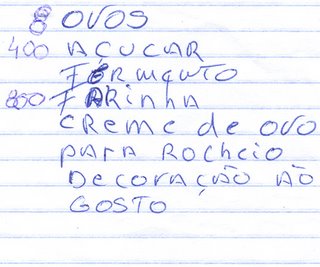 8 OVOS
400 AÇUCAR
FERMENTO
800 FARINHA
CREME de OVO
PARA ROCHEIO
DECORAÇÃO ÃO
GOSTO